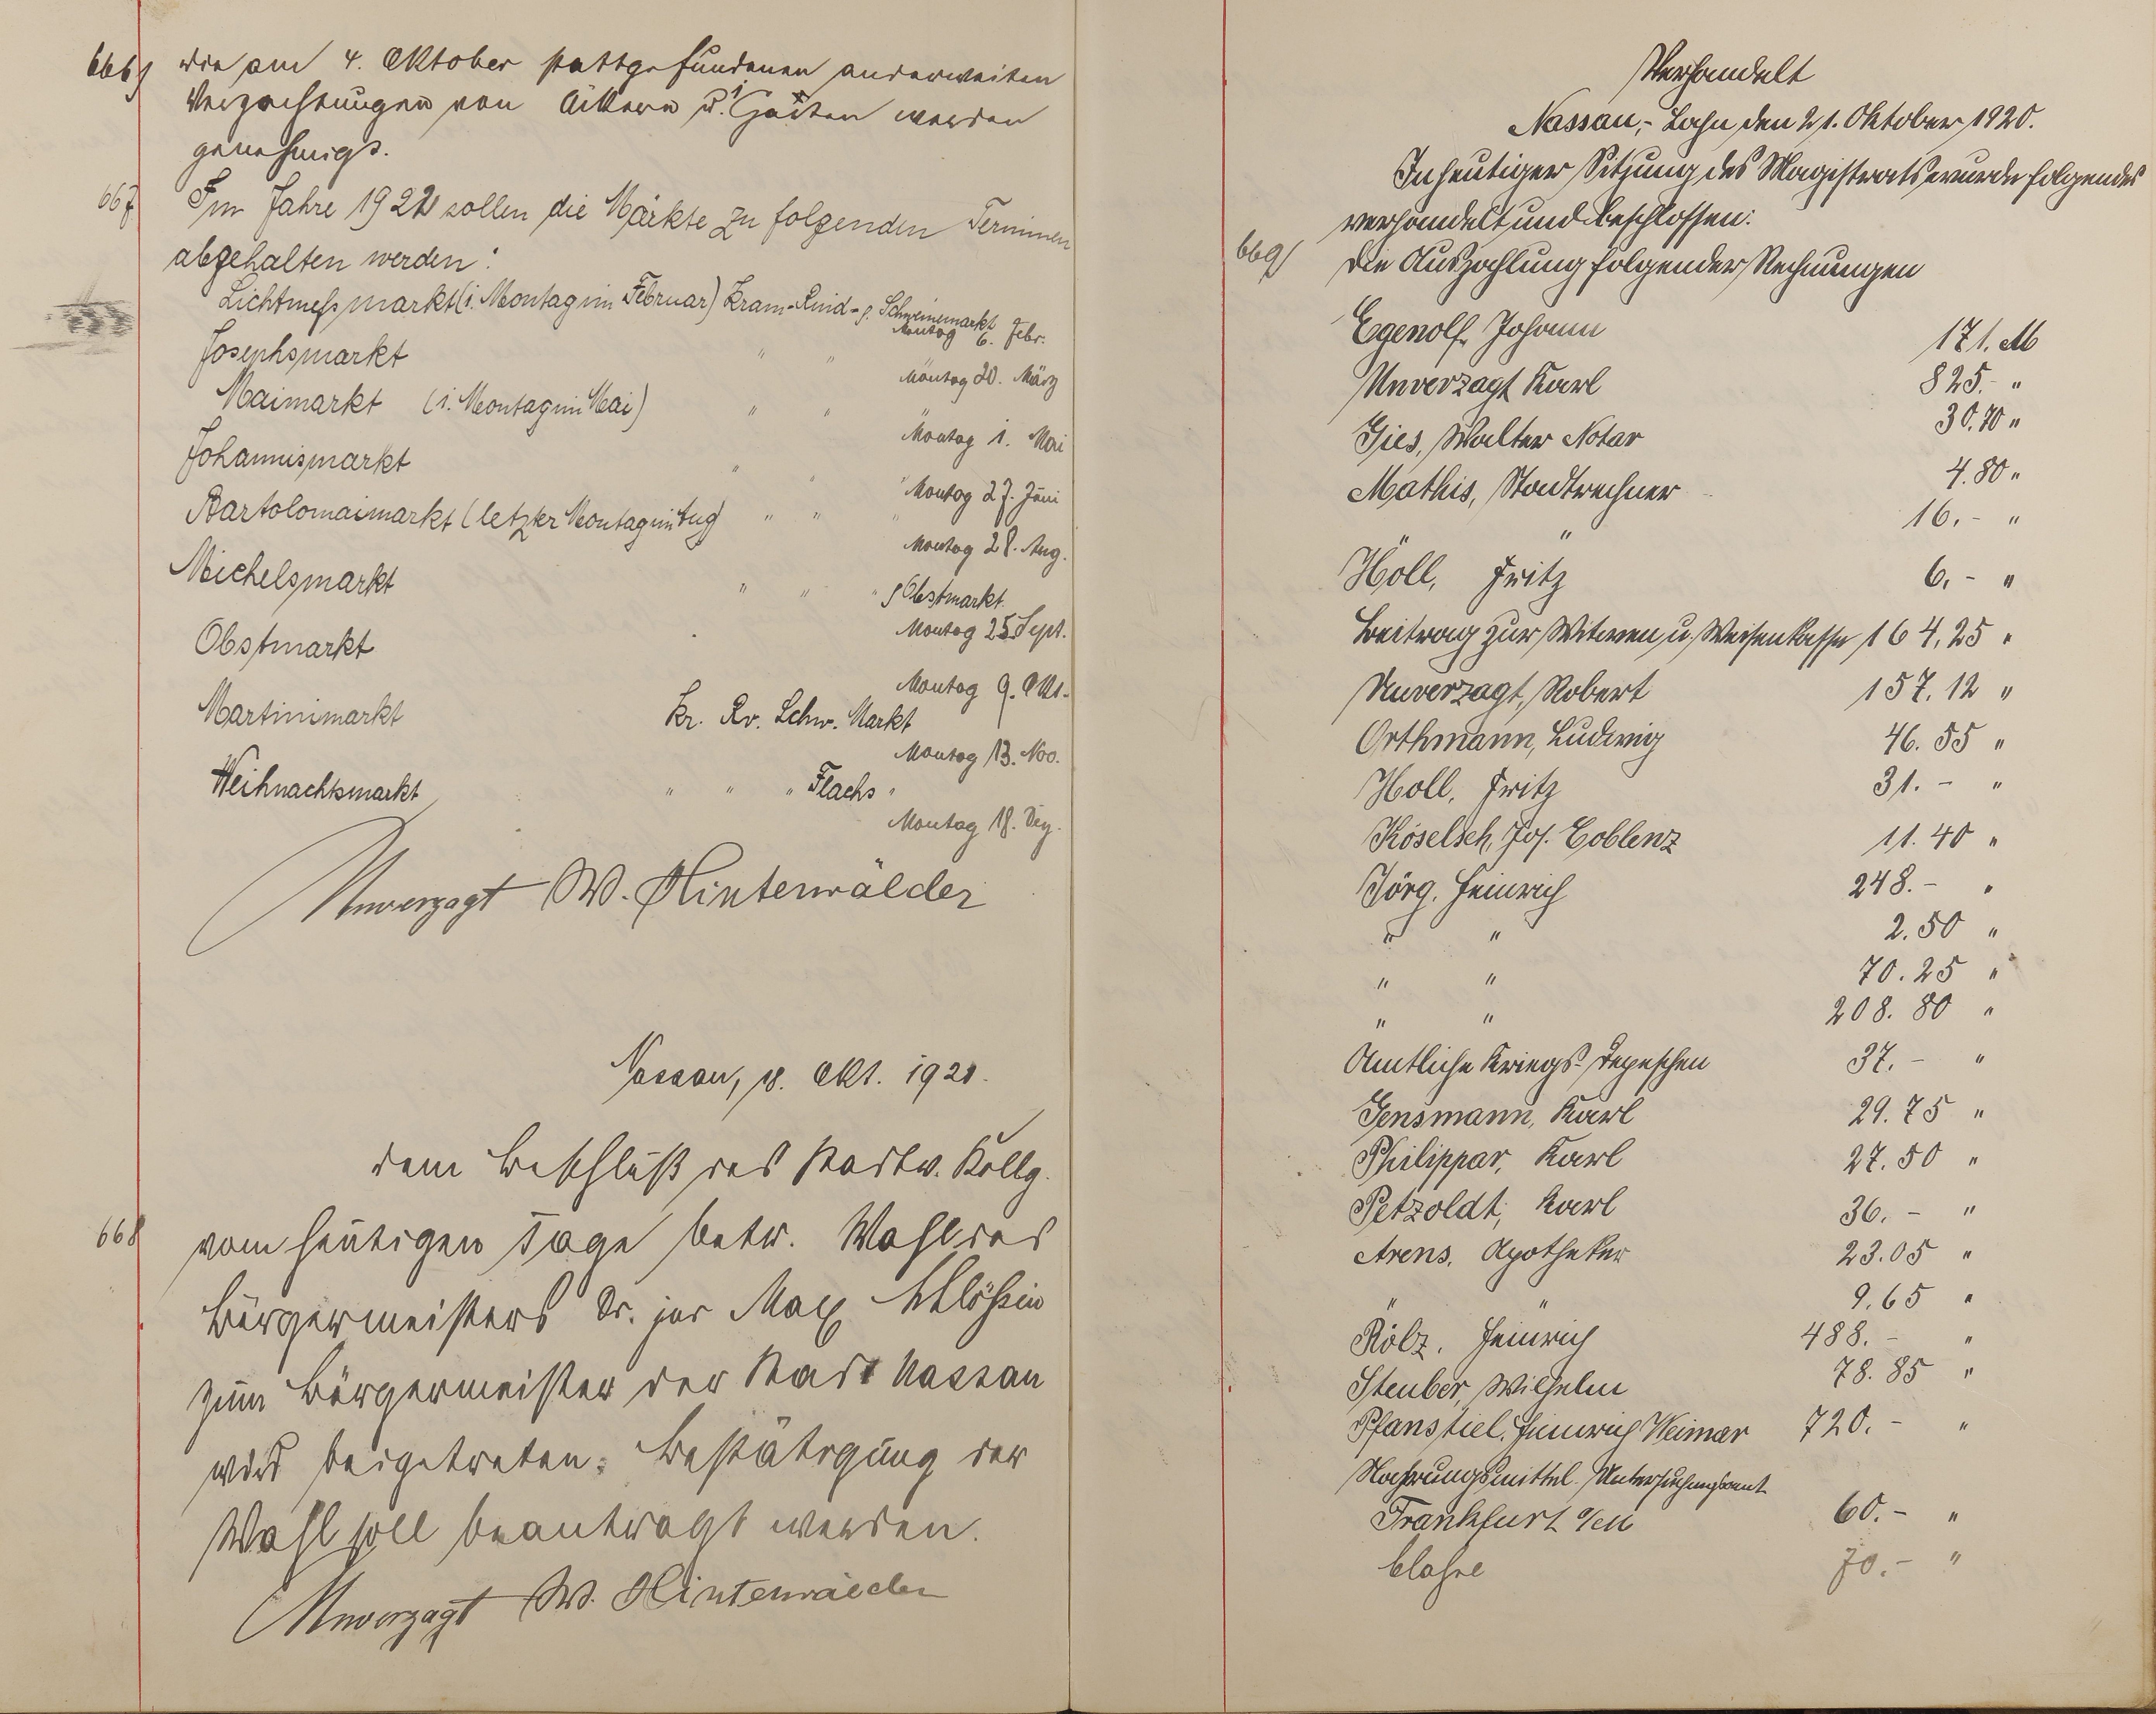 666) die am 4. Oktober stattgefundenen anderweiten
Verpachtungen von Äckern u. Gärten werden
genehmigt.
667 Im Jahre 1922 sollen die Märkte zu folgenden Terminen
abgehalten werden:
Lichtmeßmarkt (1. Montag im Februar) Kram-Rind- u. Schweinemarkt
Montag 6. Febr.
Josephsmarkt " "
Montag 20. März
Maimarkt (1. Montag im Mai) " " "
Montag 1. Mai
Johannismarkt " " "
Montag 27. Juni
Bartolomaimarkt (letzter Montag im Aug) " " "
Montag 28. Aug.
Michelsmarkt " " "
Obstmarkt
Montag 25 Sept.
Obstmarkt
Montag 9. Okt.
Martinimarkt Kr. Rv. Schw. Markt
Montag 13. Nov.
Weihnachtsmarkt " " " Flachs "
Montag 18. Dez.
Unverzagt W. Hinterwälder
Nassau, 18. Okt. 1921.
668 dem Beschluß des Stadtv. Kollg.
vom heutigen Tage betr. Wahl des
Bürgermeisters Dr. jur Max
zum Bürgermeister der Stadt Nassau
wird beigetreten. Bestätigung der
Wahl soll beantragt werden.
Unverzagt W. Hinterwälder
Verhandelt
Nassau,- Lahn den 21. Oktober 1920.
In heutiger Sitzung des Magistrats wurde folgendes
verhandelt und beschlossen:
669) Die Auszahlung folgender Rechnungen
Egenolf, Johann 171. M
Unverzagt Karl 825.- "
Gies, Walter Notar 30.70 "
Mathis, Stadtrechner 4.80 "
" 16.- "
Höll, Fritz 6.- "
Beitrag zur Witwen u. Weisenkasse 164,25 "
Unverzagt, Robert 157.12 "
Orthmann, Ludwig 46.55 "
Höll, Fritz 31.- "
Köselsch, Jos. Coblenz 11.40 "
Jörg, Heinrich 248.- "
" " 2.50 "
" " 70.25 "
" " 208.80 "
Amtliche Kriegs-Depeschen 37.- "
Gensmann, Karl 29.75 "
Philippar, Karl 27.50 "
Petzoldt, Karl 36.- "
Arens, Apotheker 23.05 "
" " 9.65 "
Rölz, Heinrich 488.- "
Steuber, Wilhelm 78.85 "
Pfanstiel, Heinrich Weimar 720.- "
Nahrungsmittel-Untersuchungsamt
Frankfurt a/M 60.- "
70.- "